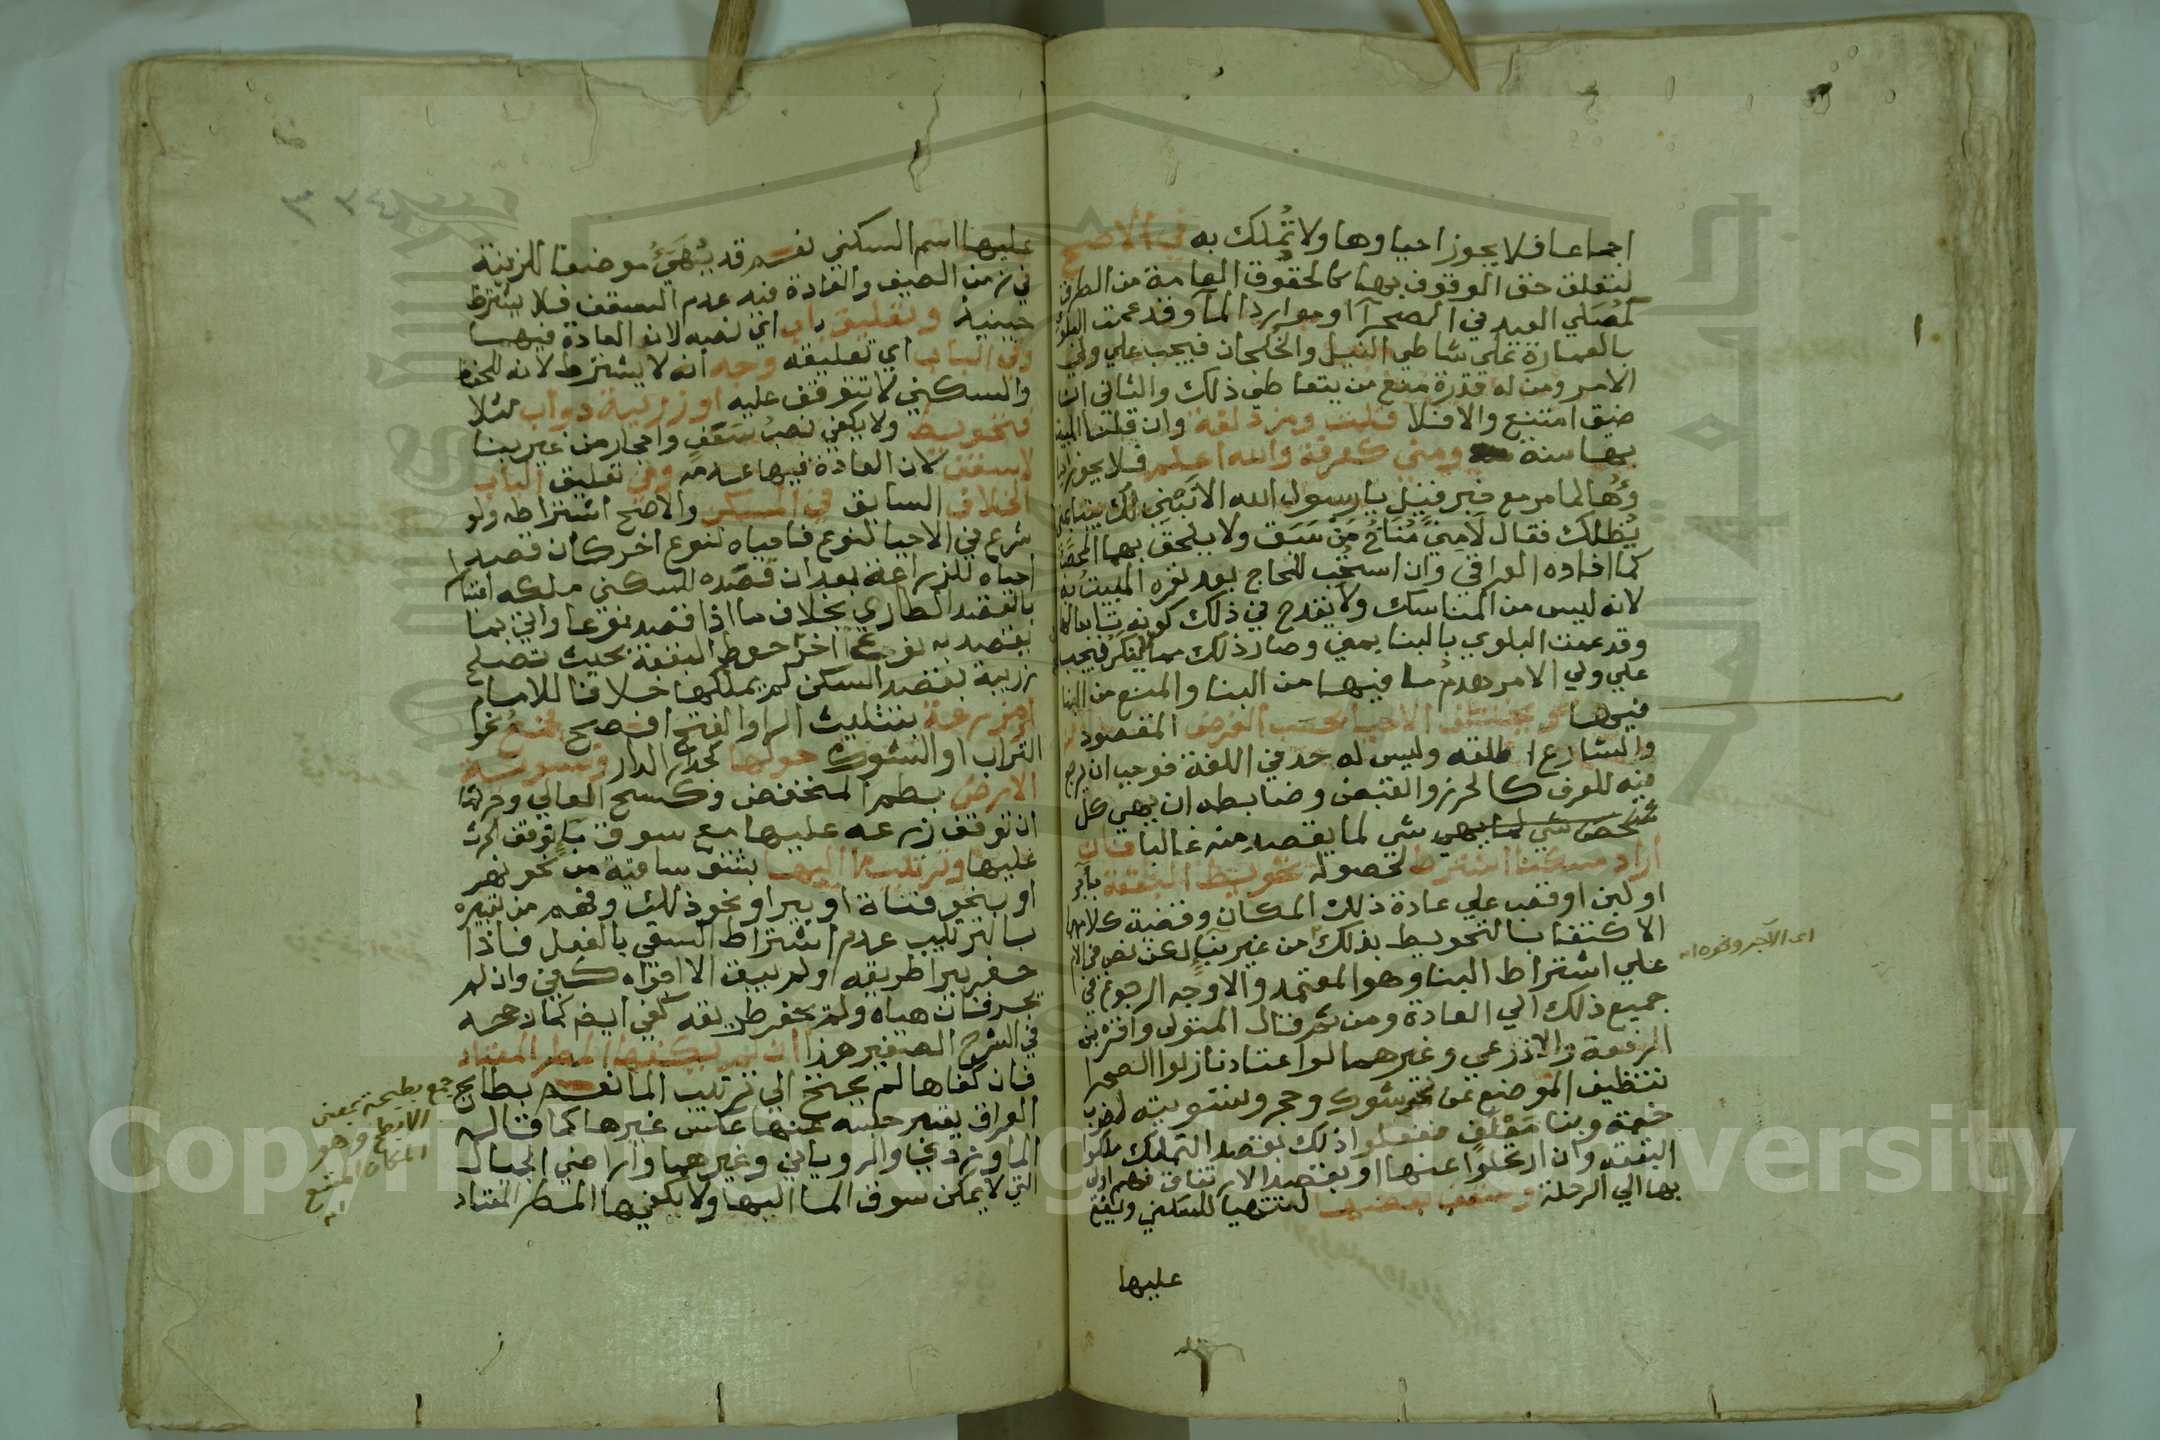 اجماعا فلا يجوز احياوها ولا تُملك به في الاصح
لتعلق حق الوقوف بها كالحقوق العامة من الطرق
كمُصَلي العيد في الصحرآ او موارد المآ وقد عمت البلوى
بالعمارة علي شاطي النيل والخلجان فيجب علي ولي
الامر ومن له قدرة منع من يتعاطي ذلك والثاني ان
ضيق امتنع والا فلا قلت ومزدلفة وان قلنا المبيت
بها سنة ومنى كعرفة والله اعلم فلا يجوز احيا
وُها لما مر مع خبر قيل يا رسول الله الا نبني لك بيتا بمنى
يُظلك فقال لا مِنىً مُنَاخُ مَنْ سَبَق ولا يلحق بها المحصَّب
كما افاده العراقي وان استُحِب للحاج بعد نفره المبيتُ به
لانه ليس من المناسك ولا يقدح في ذلك كونه تابعا لها
وقد عمت البلوي بالبنا بمني وصار ذلك مما لا ينكر فيجب
علي ولي الامر هدمُ ما فيها من البنا والمنع من البنا
فيها ويختلف الاحيا بحسب الغرض المقصود
والشارع اطلقه وليس له حد في اللغة فوجب ان يرجع
فيه للعرف كالحرز والقبض وضابطه ان يهي كل
شي لما يقصد منه غالبا فان
اراد مسكنا اشترط لحصوله تحويط البقعة بآجر
او لبن او قصب علي عادة ذلك المكان وقضية كلامهما
الاكتفا بالتحويط بذلك من غير بنآ لكن نص في الام
علي اشتراط البنا وهو المعتمد والاوجه الرجوع في
جميع ذلك الي العادة ومن ثم قال المتولي واقره ابن
الرفعة والاذرعي وغيرهما لو اعتاد نازلوا الصحرا
تنظيف الموضع عن نحو شوك وحجر وتسويته لضرب
خيمة وبنا مَعْلَفٍ ففعلوا ذلك بقصد التملك ملكوا
البقعة وان ارتحلوا عنها او بقصد الارتفاق فهم اولي
بها الي الرحلة وسقف بعضها لتتهيا للسكني ويقع
عليها
اى الآجر ونحوه اه
٣٢٤
عليها اسم السكني نعم قد يُهيَّئُ موضعا للنزهة
في زمن الصيف والعادة فيه عدم السقف فلا يشترط
حينيذ وتعليق باب اي نصبه لان العادة فيهما
وفي الباب اي تعليقه وجه انه لا يشترط لانه للحفظ
والسكني لا تتوقف عليه او زريبة دواب مثلا
فتحويط ولا يكفي نصبُ سَعَفٍ واحجار من غير بنا
لا سقف لان العادة فيها عدمه وفي تعليق الباب
الخلاف السابق في المسكن والاصح اشتراطه ولو
شرع في الاحيا لنوع فاحياه لنوع اخر كان قصد
احياه للزراعة بعد ان قصده للسكني ملكه اعتبارا
بالقصد الطاري بخلاف ما اذا قصد نوعا واتي بما
يقصد به نوع اخر كان حوط البقعة بحيث تصلح
زريبة بقصد السكني لم يملكها خلافا للامام
او مزرعة بتثليث الرا والفتح افصح فجمعُ نحو
التراب او الشوك حولها كجدار الدار وتسوية
الارض بطم المنخفض وكسح العالي وحرثها
ان توقف زرعه عليها مع سوق مآ توقف الحرث
عليها وترتيب مآ اليها بشق ساقية من نحو نهر
او بنحو قناة او بير او نحو ذلك وفهم من تعبيره
بالترتيب عدم اشتراط السقي بالفعل فاذا
حفر بيرا طريقه ولم يبق الا اجراه كفي وان لم
يجر فان هياه ولم يحفر طريقه كفي ايضا كما رجحه
في الشرح الصغير هذا ان لم يكفها المطر المعتاد
فان كفاها لم يحتج الي ترتيب المآ نعم بطايح
العراق يعتبر حبسه عنها عكس غيرها كما قاله
الماوردي والروياني وغيرهما واراضي الجبال
التي لا يمكن سوق المآ اليها ولا يكفيها المطر المعتاد
جمع بطيحة بمعنى
الابطح وهو
المكان المتسع
اه